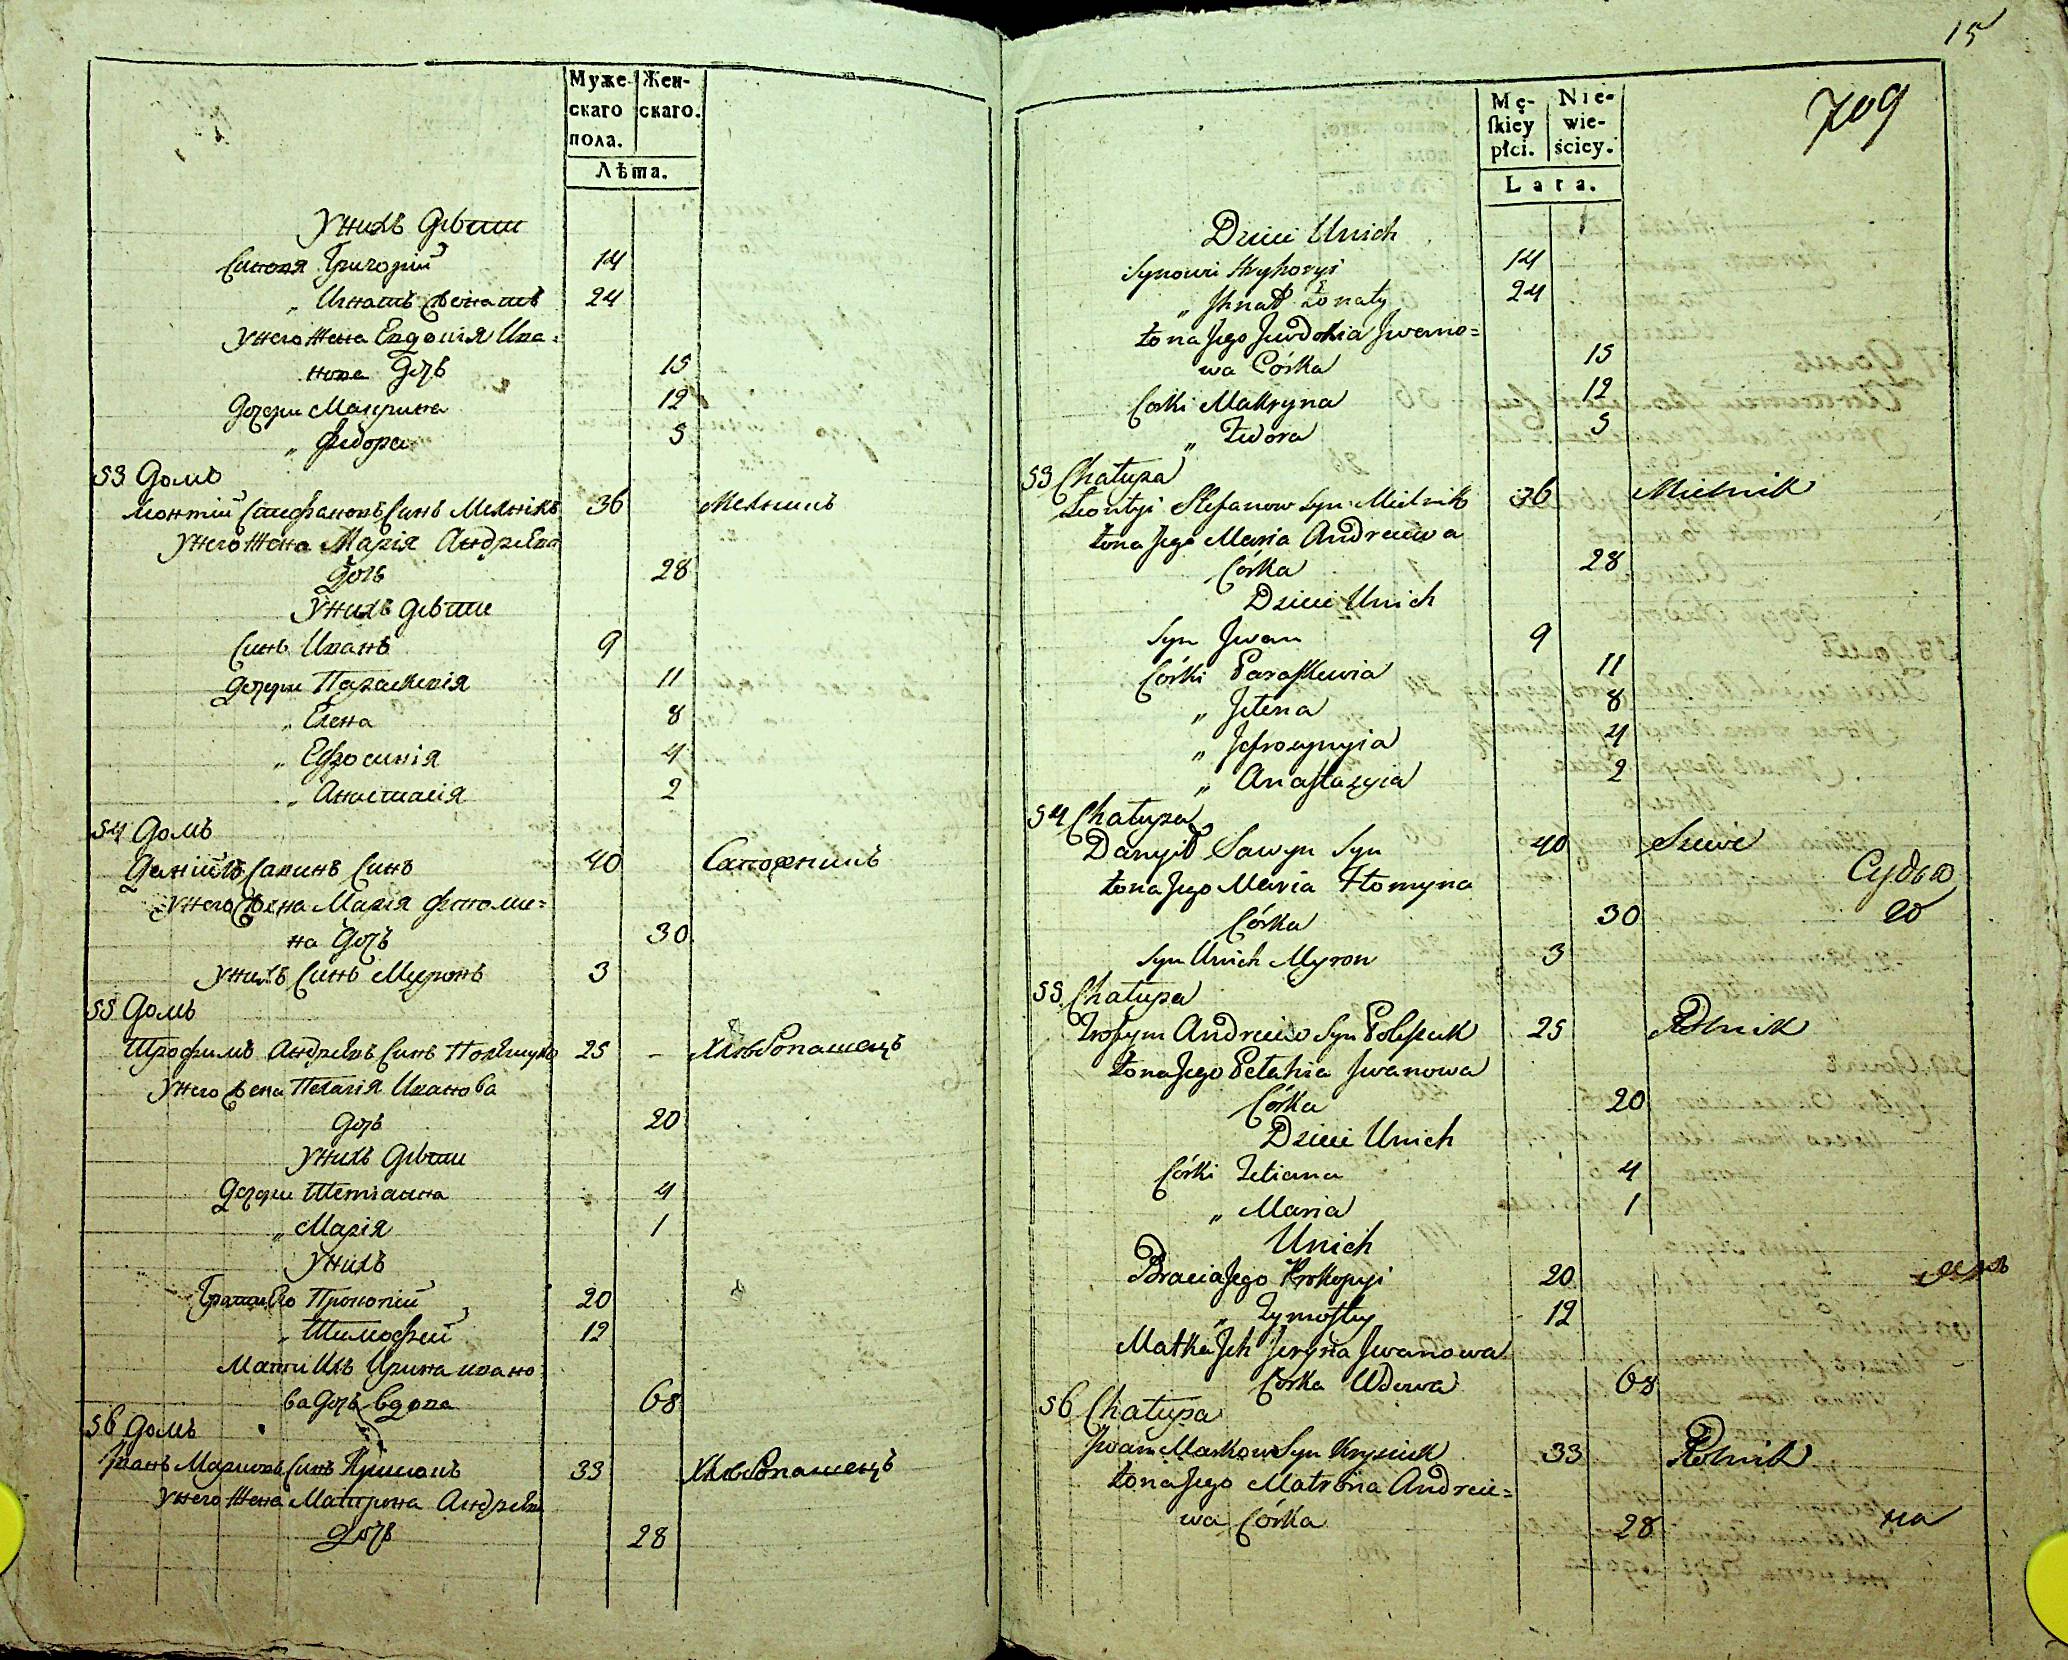 Муже-
скаго
пола.
Жен-
скаго.
Лѣта.
Унихъ Дѣти
Синовя Григорій 14
„ Игнатъ Женатъ 24
Унего Жена Евдокія Ива-
нова Дочь 15
Дочери Макрина 12
„ Федора 5
53 Домъ
Леонтій Стефановъ Синъ Мельникъ 36 Мельникъ
Унего Жена Марія Андрѣева
Дочь 28
Унихъ Дѣти
Синъ Иванъ 9
Дочери Параскевія 11
„ Елена 8
„ Ефросинія 4
„ Анастасія 2
54 Домъ
Даніилъ Савинъ Синъ 40 Сапожникъ
Унего Жена Марія Фтоми-
на Дочь 30
Унихъ Синъ Миронъ 3
55 Домъ
Трофимъ Андрѣевъ Синъ Полѣщукъ 25 – Хлѣбопашецъ
Унего Жена Пелагія Иванова
Дочь 20
Унихъ Дѣти
Дочери Тетіанна 4
„ Марія 1
Унихъ
Братья Его Прокопій 20
„ Тимофей 12
Мати Ихъ Ирина Ивано-
ва Дочь Вдова 68
56 Домъ
Иванъ Марковъ Синъ 33 Хлѣбопашецъ
Унего Жена Матрона Андрѣева
Дочь 28
15
709
Mę-
ſkiey
płci.
Nie-
wie-
ściey.
Lata.
Dzieci Unich
Synowie Hryhoryi 14
„ Jhnat Żonaty 24
Żona Jego Jewdokia Jwano=
wa Córka 15
Corki Makryna 12
„ Fedora 5
53 Chałupa
Leontyi Stefanow Syn Mielnik 36 Mielnik
Żona Jego Maria Andreiewa
Córka 28
Dzieci Unich
Syn Jwan 9
Córki Paraſkiewia 11
„ Jelena 8
„ Jefrozynyia 4
„ Anaſtazyia 2
54 Chałupa
Danyił Sawyn Syn 40 Szewc
Żona Jego Maria Ftomyna Судьо
Córka 30 20
Syn Unich Myron 3
55 Chałupa
Trofym Andreiew Syn Poleſzuk 25 Rolnik
Żona Jego Pelahia Jwanowa
Córka 20
Dzieci Unich
Córki Tetiana 4
„ Maria 1
Unich
Bracia Jego Prokopyi 20
„ Tymoſtey 12
Matka Jch Jeryna Jwanowa
Córka Wdowa 68
56 Chałupa
Jwan Markow Syn Krysiuk 33 Rolnik
Żona Jego Matrona Andreie=
wa Córka 28 на